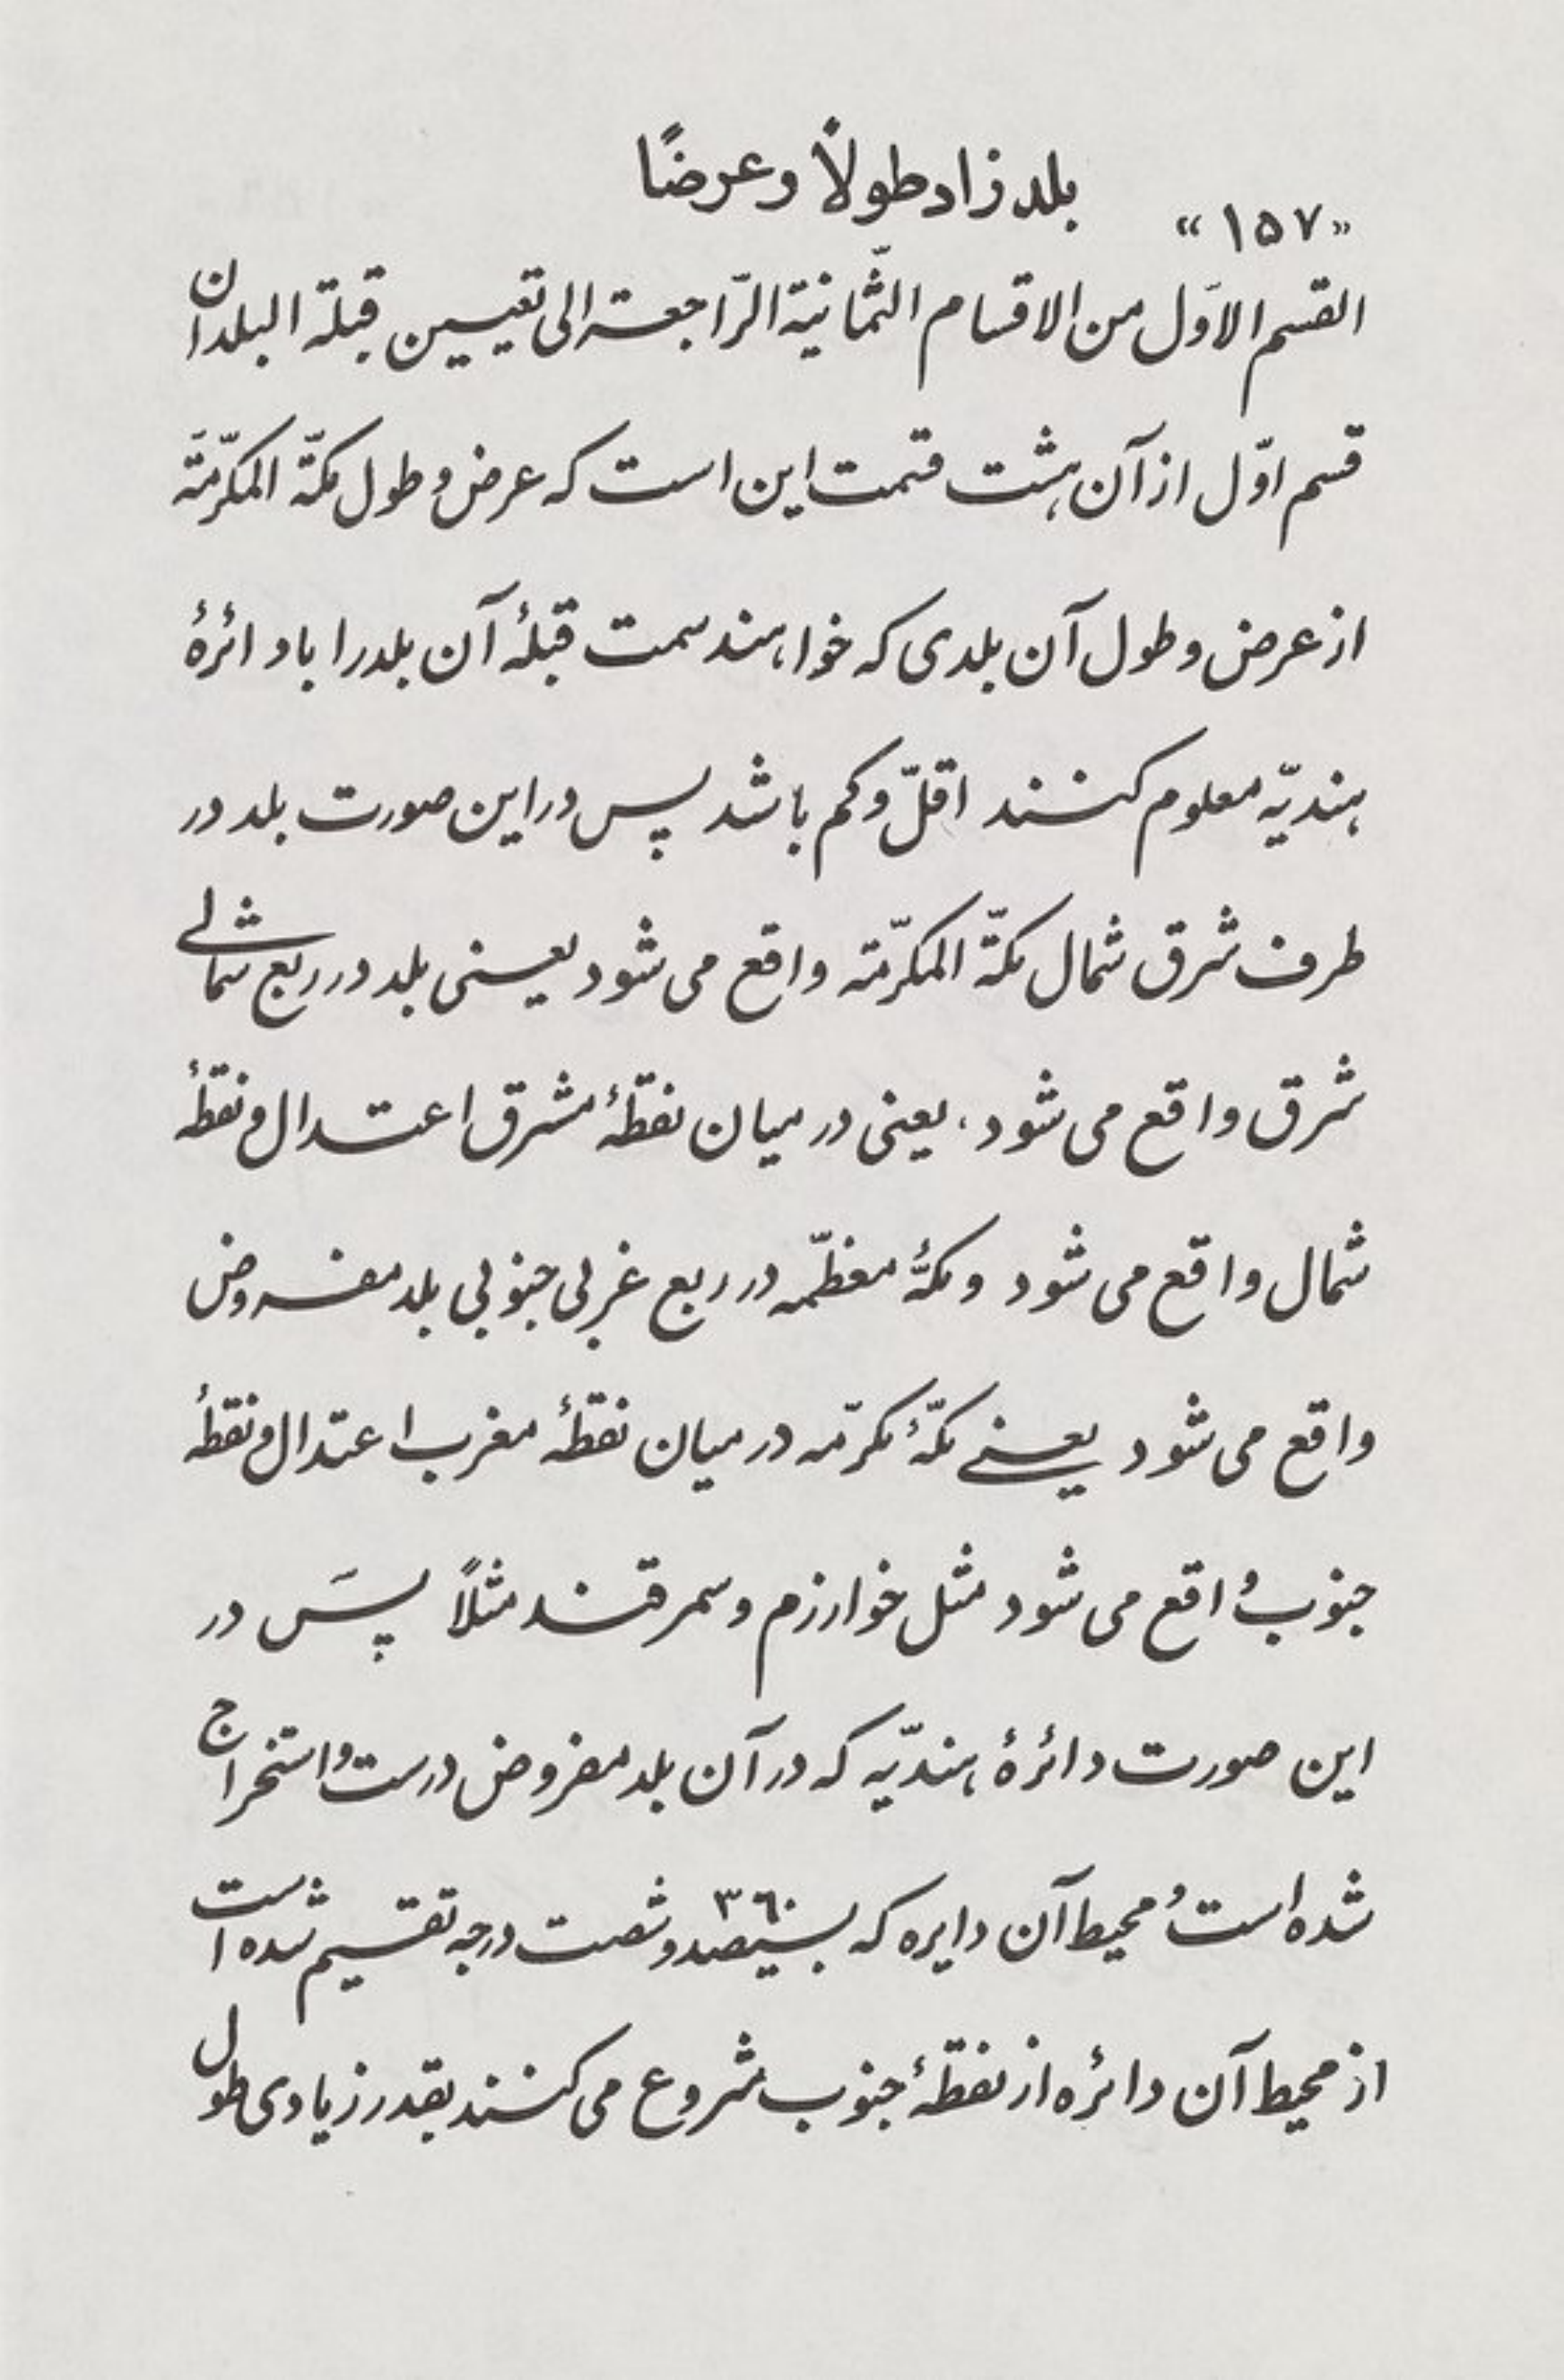 بلد زاد طولاً و عرضًا
«۱۵۷»
القسم الاوّل من الاقسام الثّمانیة الرّاجعة الی تعیین قبلة البلدان
قسم اوّل از آن هشت قسمت این است که عرض و طول مکّة المکرّمَة
از عرض و طول آن بلدی که خواهند سمت قبلهٔ آن بلد را با دائرهٔ
هندیّه معلوم کنند اقلّ و کم باشد پس در این صورت بلد در
طرف شرق شمال مکّة المکرّمة واقع می شود یعنی بلد در ربع شمالی
شرق واقع می شود، یعنی در میان نقطهٔ مشرق اعتدال و نقطهٔ
شمال واقع می شود و مکّهٔ معظّمه در ربع غربی جنوبی بلد مفروض
واقع می شود یعنی مکّهٔ مکرّمه در میان نقطهٔ مغرب اعتدال و نقطهٔ
جنوب واقع می شود مثل خوارزم و سمرقند مثلاً پسَ در
این صورت دائرهٔ هندیّه که در آن بلد مفروض درست و استخراج
شده است و محیط آن دایره که بسیصد و شصت ۳٦۰ درجه تقسیم شده است
از محیط آن دائره از نقطهٔ جنوب شروع می کنند بقدر زیادی طول